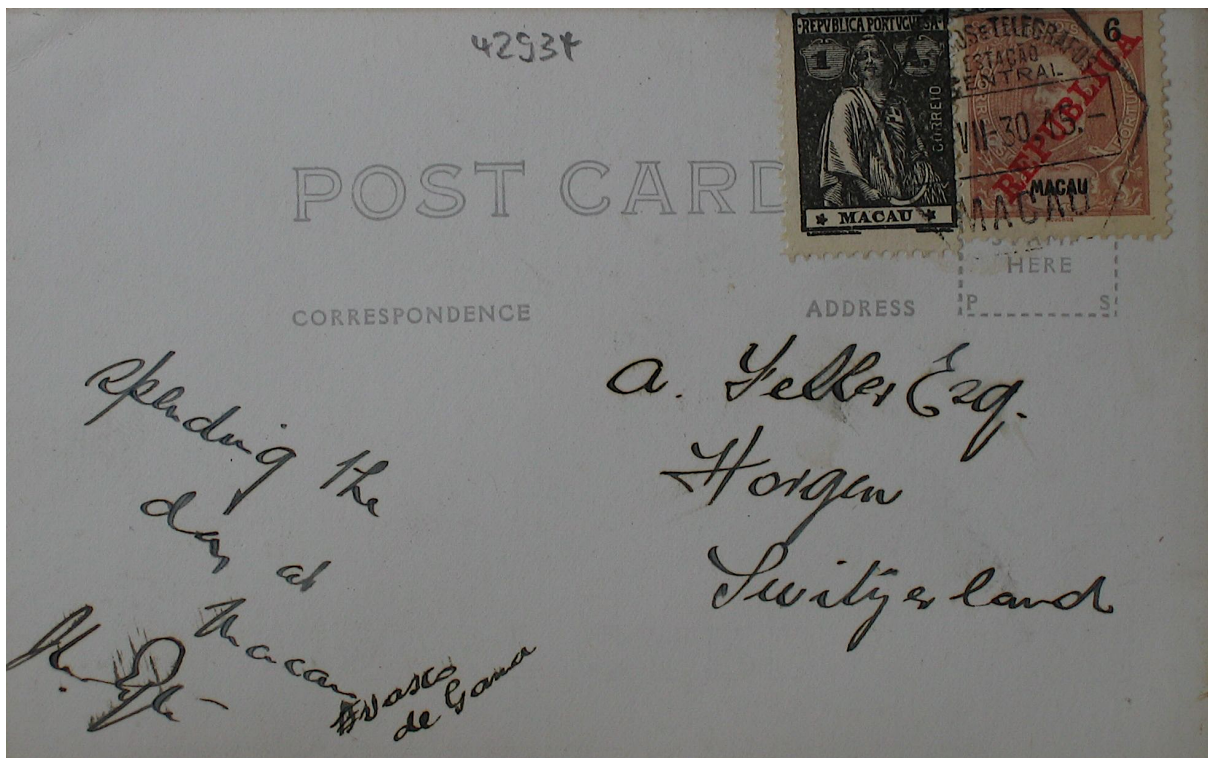 42937
REPVBLICA PORTVGVESA
1 1
CORREIO
MACAU
6
REPUBLICA
MACAU
TELEGRAFOS
ESTAÇÃO
CENTRAL
VII-30
MACAU
POST CARD
HERE
P S
CORRESPONDENCE
ADDRESS
Spending the
day at
Macau
Vasco
de Gama
A. Feller Esq.
Horgen
Switzerland